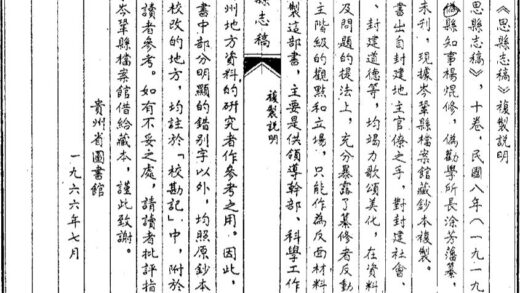 《思縣志稿》複製説明
思縣志稿》,十卷,民國八年(一九一九
僞縣知事楊焜修,僞勸學所長涂芳藩纂,
未刊,現據岑鞏縣檔案館藏鈔本複製。
書出自封建地主官僚之手,對封建社會、
、封建道德等,均竭力歌頌美化,在資料
及問題的提法上,充分暴露了纂修者反動
主階級的觀點和立場,只能作為反面材料
製這部書,主要是供領導幹部、科學工作
縣志稿
複製説明
州地方資料的研究者作參考之用。因此,
書中部分明顯的錯别字以外,均照原鈔本
校改的地方,均註於「校勘記」中,附於
讀者參考。如有不妥之處,請讀者批評指
岑鞏縣檔案館借給藏本,謹此致謝。
貴州省圖書館
一九六六年七月